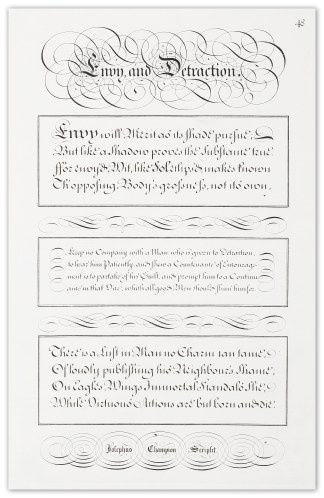 48
Envy, and Detraction.
Envy will Merit as its shade pursue,
But like a Shadow proves the Substance true
ffor envy'd Wit, like Sol eclips'd, makes known
Th' opposing Body's grossness, not its own.
Keep no Company with a Man who is given to Detraction,
to hear him Patiently, and shew a Countenance of Encourage-
ment is to partake of his Guilt, and prompt him to a Continu-
ance in that Vice, which all good Men should shun him for.
There is a Lust in Man no Charm can tame,
Of loudly publishing his Neighbour's Shame,
On Eagles Wings Immortal Scandals fly,
While Virtuous Actions are but born and die.
Josephus Champion Scripsit